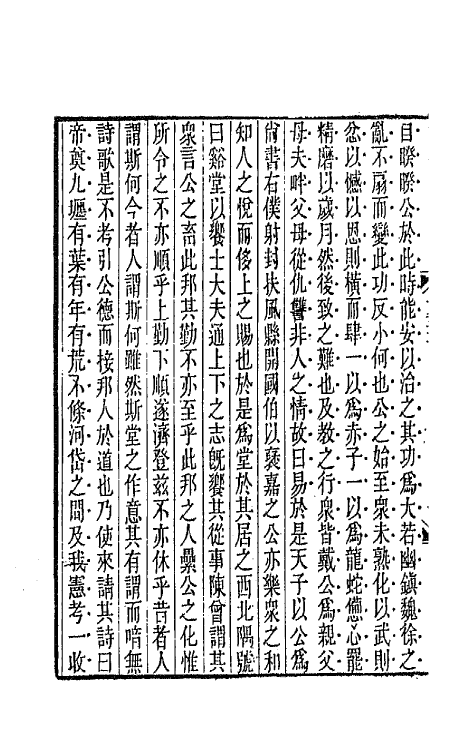 目睽睽公於此時能安以治之其功爲大若幽鎮魏徐之
亂不扇而變此功反小何也公之始至衆未熟化以武則
忿以憾以恩則橫而肆一以爲赤子一以爲龍蛇憊心罷
精磨以歲月然後致之難也及教之行衆皆戴公爲親父
母夫畔父母從仇讐非人之情故曰易於是天子以公爲
尙書右僕射封扶風縣開國伯以襃嘉之公亦樂衆之和
知人之悅而侈上之賜也於是爲堂於其居之西北隅號
曰谿堂以饗士大夫通上下之志旣饗其從事陳曾謂其
衆言公之畜此邦其勤不亦至乎此邦之人纍公之化惟
所令之不亦順乎上勤下順遂濟登茲不亦休乎昔者人
謂斯何今者人謂斯何雖然斯堂之作意其有謂而喑無
詩歌是不考引公德而接邦人於道也乃使來請其詩曰
帝奠九壥有葉有年有荒不條河岱之間及我憲考一收